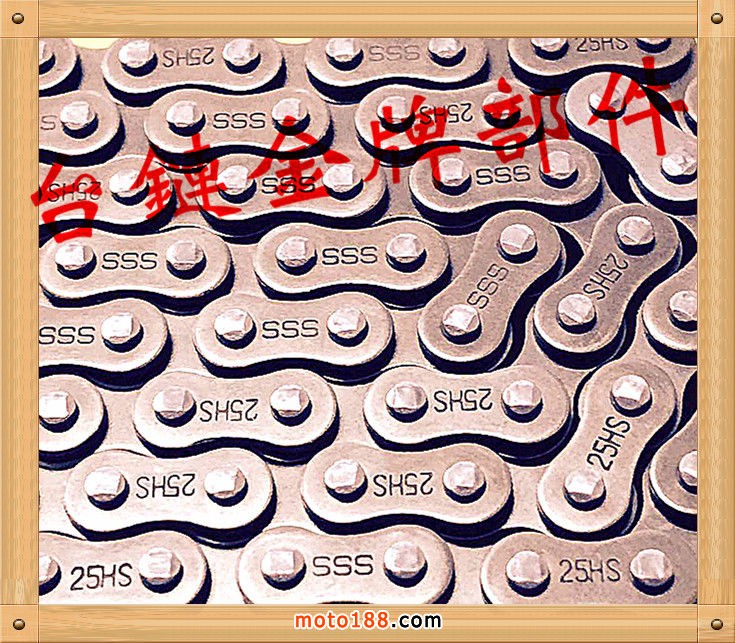 25HS SSS 25HS
SSS 25HS
台鏈金牌部件
25HS SSS SSS
SSS SSS SSS 25HS
SSS SSS
25HS 25HS 25HS
25HS 25HS
25HS SSS 25HS
moto188.com